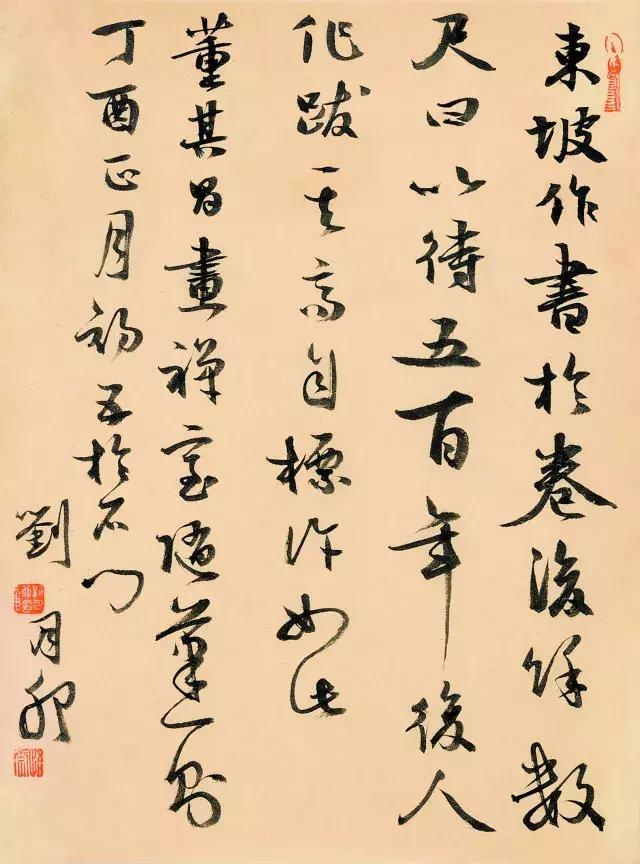 東坡作書於卷後餘數
尺曰以待五百年後人
作跋其高自標許如此
董其昌畫禪室隨筆一則
丁酉正月初五於石門
劉月卯